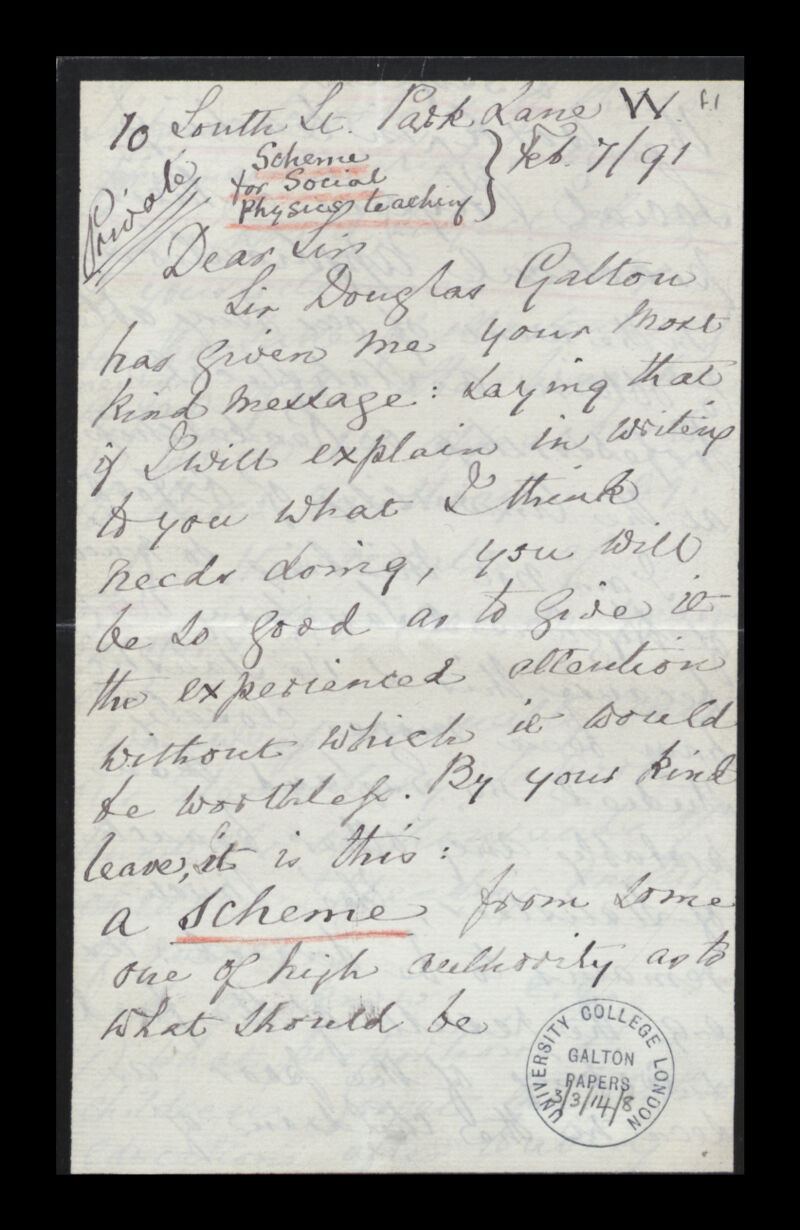 10 South St. Park Lane W. f.1
Private
Scheme
for Social
Physics teaching
} Feb. 7/91
Dear Sir
Sir Douglas Galton
has given me your most
kind message: saying that
if I will explain in writing
to you what I think
needs doing, you will
be so good as to give it
the experienced attention
without which it would
be worthless. By your kind
leave, it is this:
A Scheme from some
one of high authority as to
what should be
UNIVERSITY COLLEGE LONDON
GALTON
PAPERS
3/3/14/8